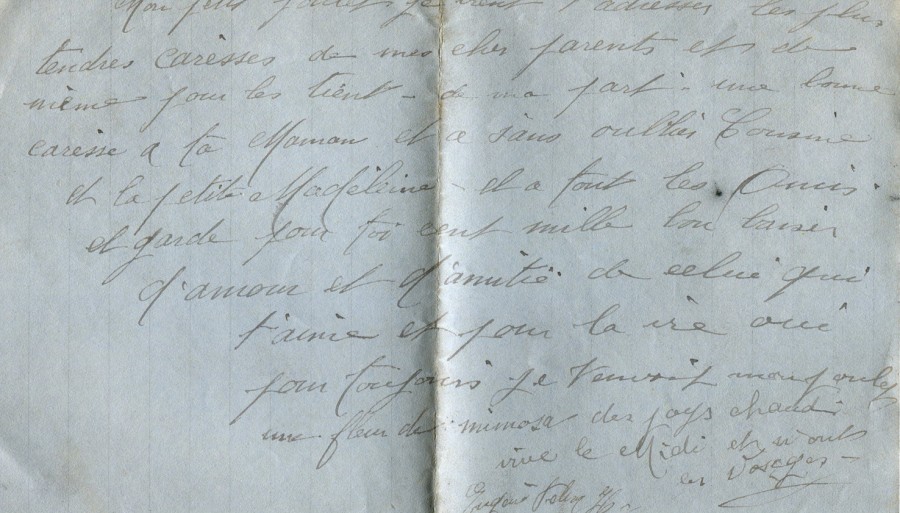 Mon petit poulet je vient t'adresser les plus
tendres carèsses de mes cher parents et de
même pour les tient - de ma part - une bonne
carèsse a ta Maman et a sans oublier Cousine
et la petite Madéleine - et a tout les Amis.
et garde pour toi cent mille bon baiser
d'amour et d'amitié de celui qui
t'aime et pour la vie oui
pour toujours je t'envoit mon poulet
une fleur de mimosa des pays chauds
vive le Midi et
les Vosages -
Eugène